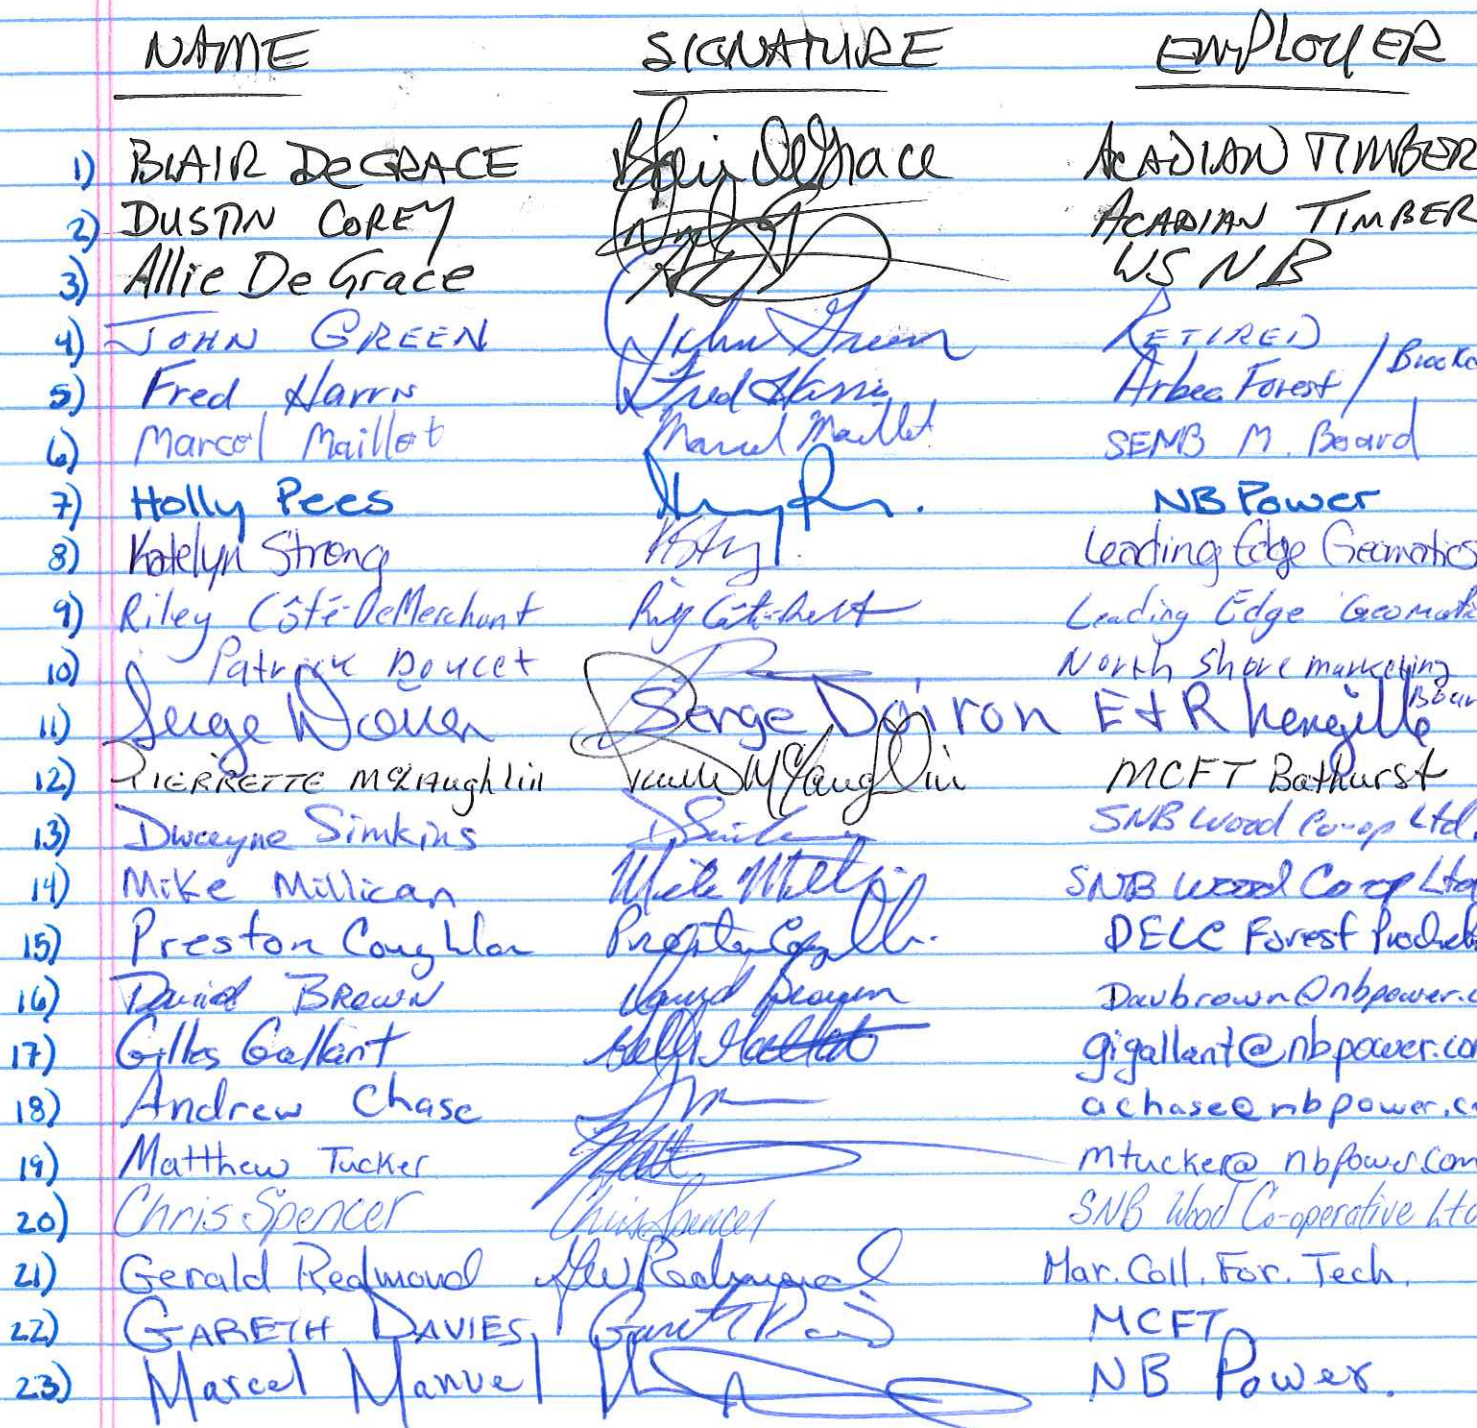 NAME SIGNATURE EMPLOYER
1) BLAIR DeGRACE Blair DeGrace ACADIAN TIMBER
2) DUSTIN COREY ACADIAN TIMBER
3) Allie DeGrace WSNB
4) JOHN GREEN John Green RETIRED
5) Fred Harris Fred Harris Arbec Forest /
6) Marcel Maillet Marcel Maillet SENB M. Board
7) Holly Pees NB Power
8) Katelyn Strong Leading Edge Geomatics
9) Riley Côté-DeMerchant Leading Edge
10) Patrick Doucet North Shore marketing
11) Serge Doiron Serge Doiron E+R
12) PIERRETTE McLAughlin McLaughlin MCFT Bathurst
13) Dwayne Simkins SNB Wood Co-op Ltd.
14) Mike Millican Mike SNB Wood Co-op
15) Preston Coughlan Preston DELC Forest
16) David BROWN David Brown
17) Gilles Gallant gigallant@nbpower.com
18) Andrew Chase
19) Matthew Tucker Matt mtucker@nbpower.com
20) Chris Spencer Chris Spencer SNB Wood Co-operative Ltd
21) Gerald Redmond GW Redmond Mar. Coll. For. Tech.
22) GARETH DAVIES MCFT
23) Marcel Manuel NB Power.